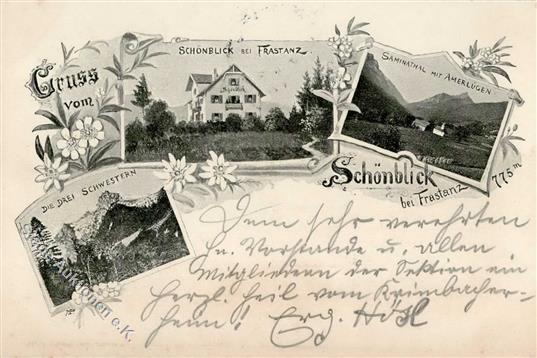 Gruss
vom
SCHÖNBLICK BEI FRASTANZ
SAMINATHAL MIT AMERLÜGEN
DIE DREI SCHWESTERN
Schönblick
bei Frastanz 775 m
Dem sehr verehrten
Hn. Vorstande u. allen
Mitgliedern der Sektion ein
herzl. Heil vom Krimbacher-
heim! Erg. Hößl
e.K.